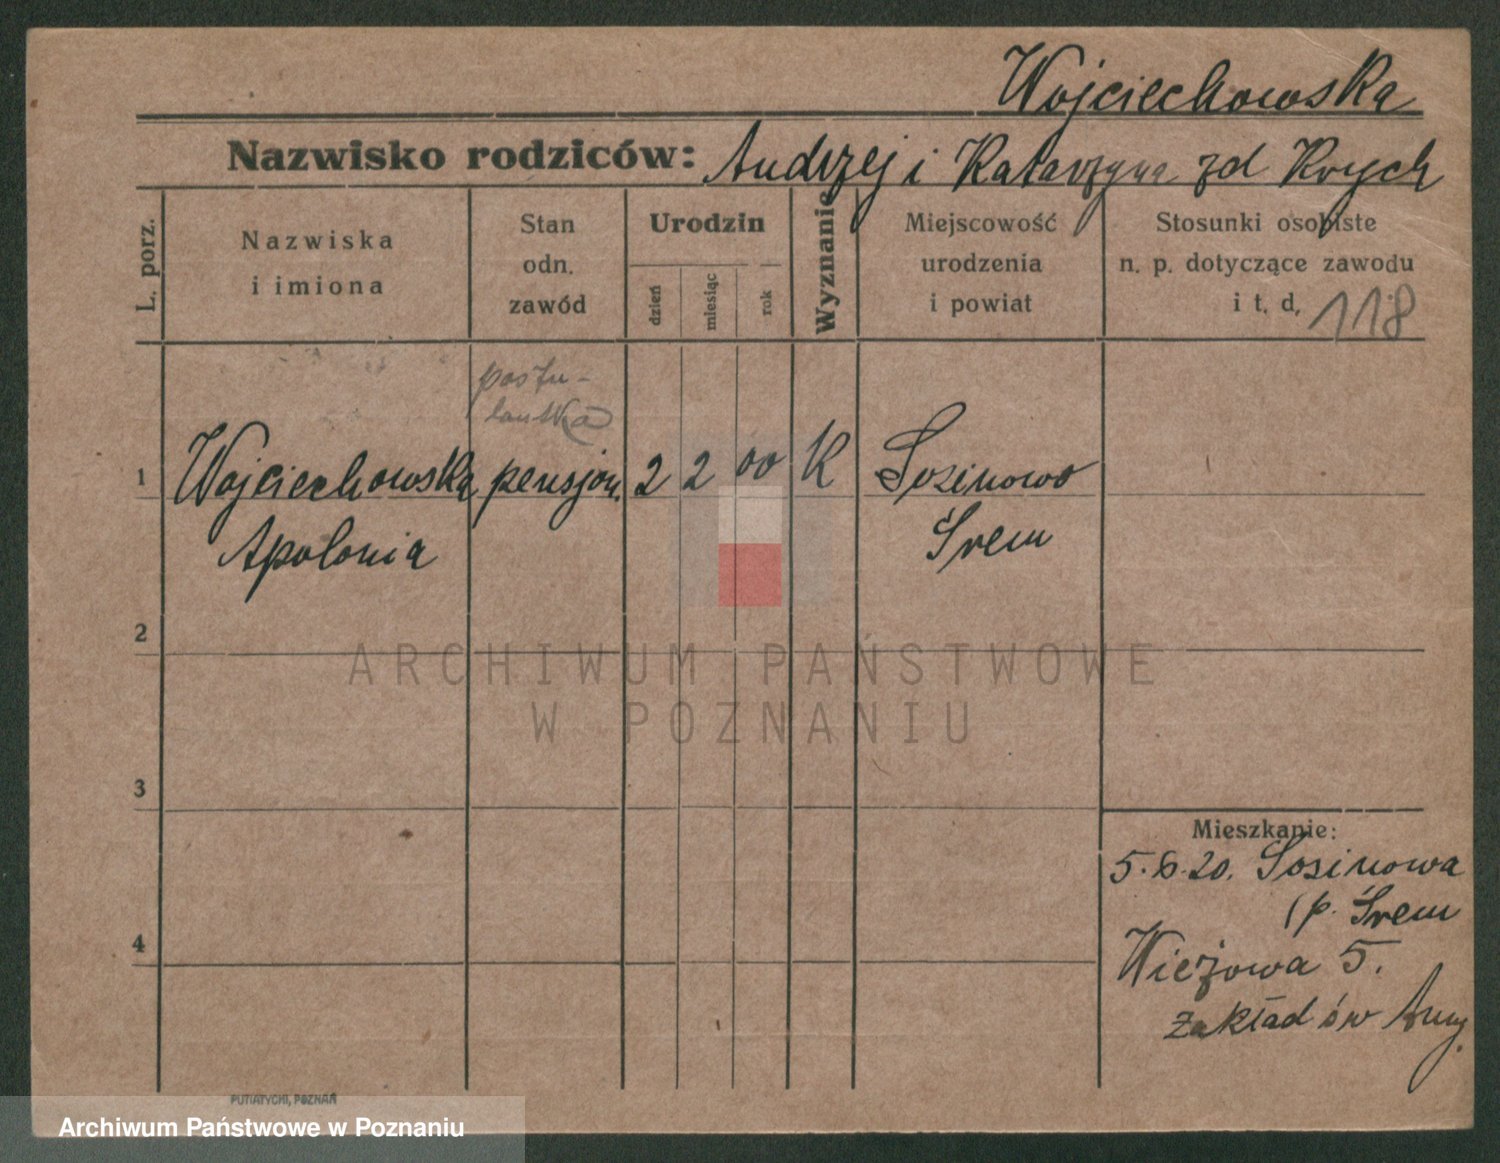 Wojciechowska
Nazwisko rodziców: Andrzej i Katarzyna zd Krych
L. porz.
Nazwiska
i imiona
Stan
odn.
zawód
Urodzin
dzień
miesiąc
rok
Wyznanie
Miejscowość
urodzenia
i powiat
Stosunki osobiste
n. p. dotyczące zawodu
i t. d. 118
postu-
lantka
1 Wojciechowska pensjon. 2 2 00 K Sosinowo
Apolonia Śrem
2
ARCHIWUM PAŃSTWOWE
W POZNANIU
3
Mieszkanie:
5.6.20. Sosinowa
(p. Śrem
4
Wieżowa 5.
Zakład św Anny.
PUTIATYCKI, POZNAŃ
Archiwum Państwowe w Poznaniu